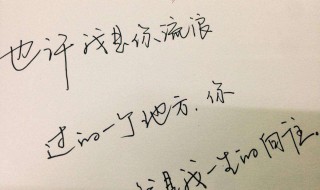 也许我是你流浪
过的一个地方，你
是我一生的向往。